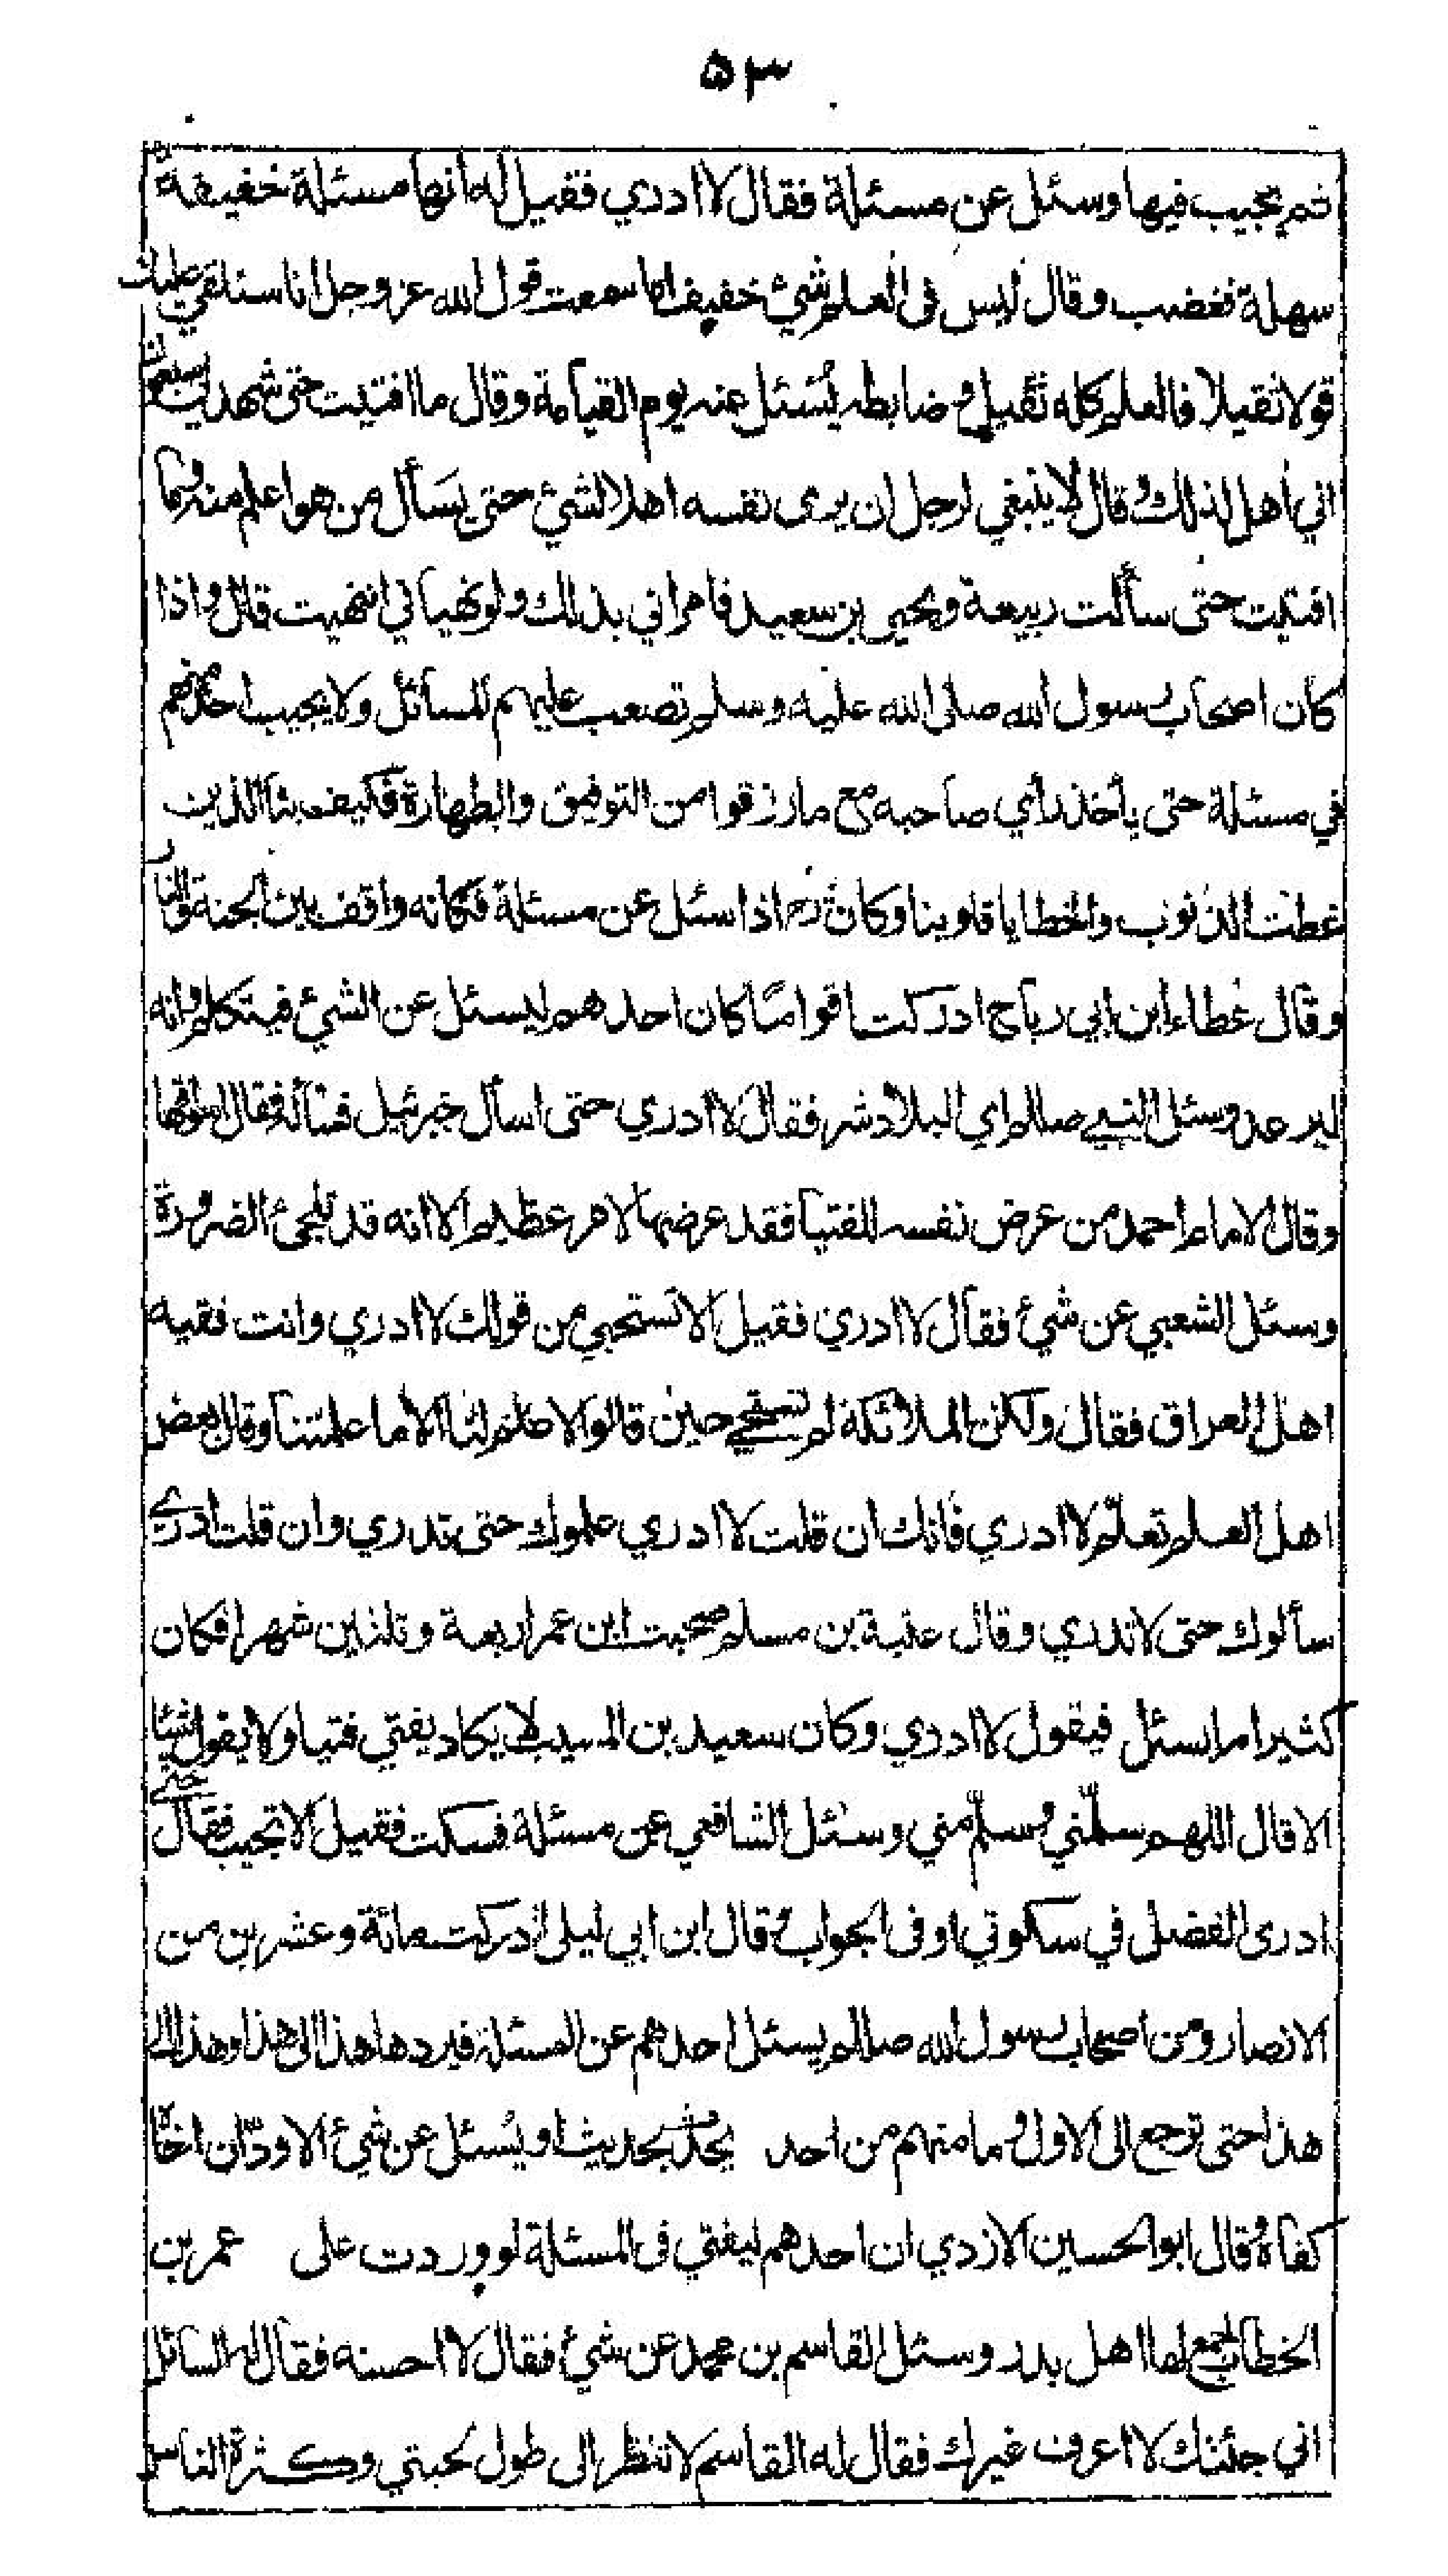 ٥٣
ثم يجيب فيها وسئل عن مسئلة فقال لا ادري فقيل له انها مسئلة خفيفة
سهلة فغضب وقال ليس في العلم شيئ خفيف اما سمعت قول الله عز وجل انا سنلقي عليك
قولا ثقيلا فالعلم كله ثقيل و ضابطه يُسئل عنه يوم القيامة وقال ما افتيت حتى شهد لي سبعون
اني أهل لذلك وقال لا ينبغي لرجل ان يرى نفسه اهلا لشيئ حتى يسأل من هو اعلم منه وما
افتيت حتى سألت ربيعة ويحيى بن سعيد فامراني بذلك ولو نهياني انتهيت قال واذا
كان اصحاب رسول الله صلى الله عليه وسلم تصعب عليهم المسائل ولا يجيب احد منهم
في مسئلة حتى يأخذ رأي صاحبه مع ما رزقوا من التوفيق والطهارة فكيف بنا الذين
غطت الذنوب والخطايا قلوبنا وكان رح اذا سئل عن مسئلة فكانه واقف بين الجنة والنار
وقال عطاء ابن ابي رباح ادركت اقواما كان احدهم ليسئل عن الشيئ فيتكلم وانه
ليرعد وسئل النبي صللم اي البلاد شر فقال لا ادري حتى اسأل جبرئيل فسأله فقال اسواقها
وقال الامام احمد من عرض نفسه للفتيا فقد عرضها لامر عظيم الا انه قد تلجئ الضرورة
وسئل الشعبي عن شيئ فقال لا ادري فقيل الا تستحيي من قولك لا ادري وانت فقيه
اهل العراق فقال ولكن الملائكة لم تستحي حين قالوا لا علم لنا الا ما علمتنا وقال بعض
اهل العلم تعلّم لا ادري فانك ان قلت لا ادري علموك حتى تدري وان قلت ادري
سألوك حتى لا تدري وقال عتبة بن مسلم صحبت ابن عمر اربعة وثلثين شهرا فكان
كثيرا ما يسئل فيقول لا ادري وكان سعيد بن المسيب لا يكاد يفتي فتيا ولا يقول شيئا
الا قال اللهم سلّمني وسلّم مني وسئل الشافعي عن مسئلة فسكت فقيل الا تجيب فقال حتى
ادرى الفضل في سكوتي او في الجواب وقال ابن ابي ليلى ادركت مائة وعشرين من
الانصار ومن اصحاب رسول الله صللم يسئل احدهم عن المسئلة فيردها هذا الى هذا وهذا الى
هذا حتى ترجع الى الاول وما منهم من احد يحدّث بحديث او يُسئل عن شيئ الا ودّ ان اخاه
كفاه وقال ابو الحسين الازدي ان احدهم ليفتي في المسئلة لو وردت على عمر بن
الخطاب لجمع لها اهل بدر وسئل القاسم بن محمد عن شيئ فقال لا احسنه فقال له السائل
اني جئتك لا اعرف غيرك فقال له القاسم لا تنظر الى طول لحيتي وكثرة الناس